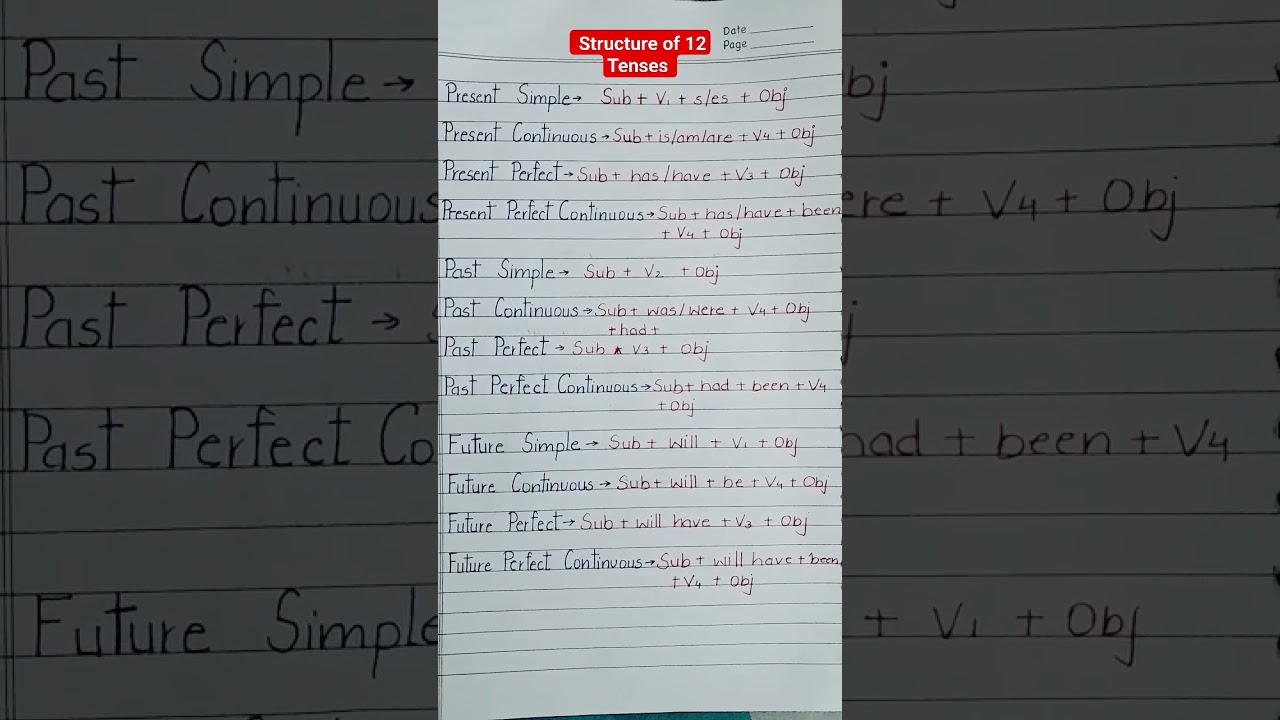 Structure of 12
Tenses
Date
Page
Present Simple→ Sub + V1 + s/es + Obj
Present Continuous→Sub+is/am/are + V4 + Obj
Present Perfect→Sub+ has/have + V3 + Obj
Present Perfect Continuous→Sub+has/have+been
+ V4 + Obj
Past Simple→ Sub + V2 + Obj
Past Continuous→Sub+ was/were + V4 + Obj
+had+
Past Perfect→ Sub ^ V3 + Obj
Past Perfect Continuous→Sub+ had + been + V4
+ Obj
Future Simple→ Sub + will + V1 + Obj
Future Continuous→ Sub+ will + be + V4 + Obj
Future Perfect→ Sub + will have + V3 + Obj
Future Perfect Continuous→Sub + will have + been
+ V4 + Obj
Past Simple→
bj
Past Continuous
ere + V4 + Obj
Past Perfect →
j
Past Perfect Co
had + been + V4
Future Simple
+ V1 + Obj